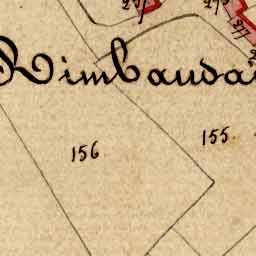 Rimbaudai
277
156
155.